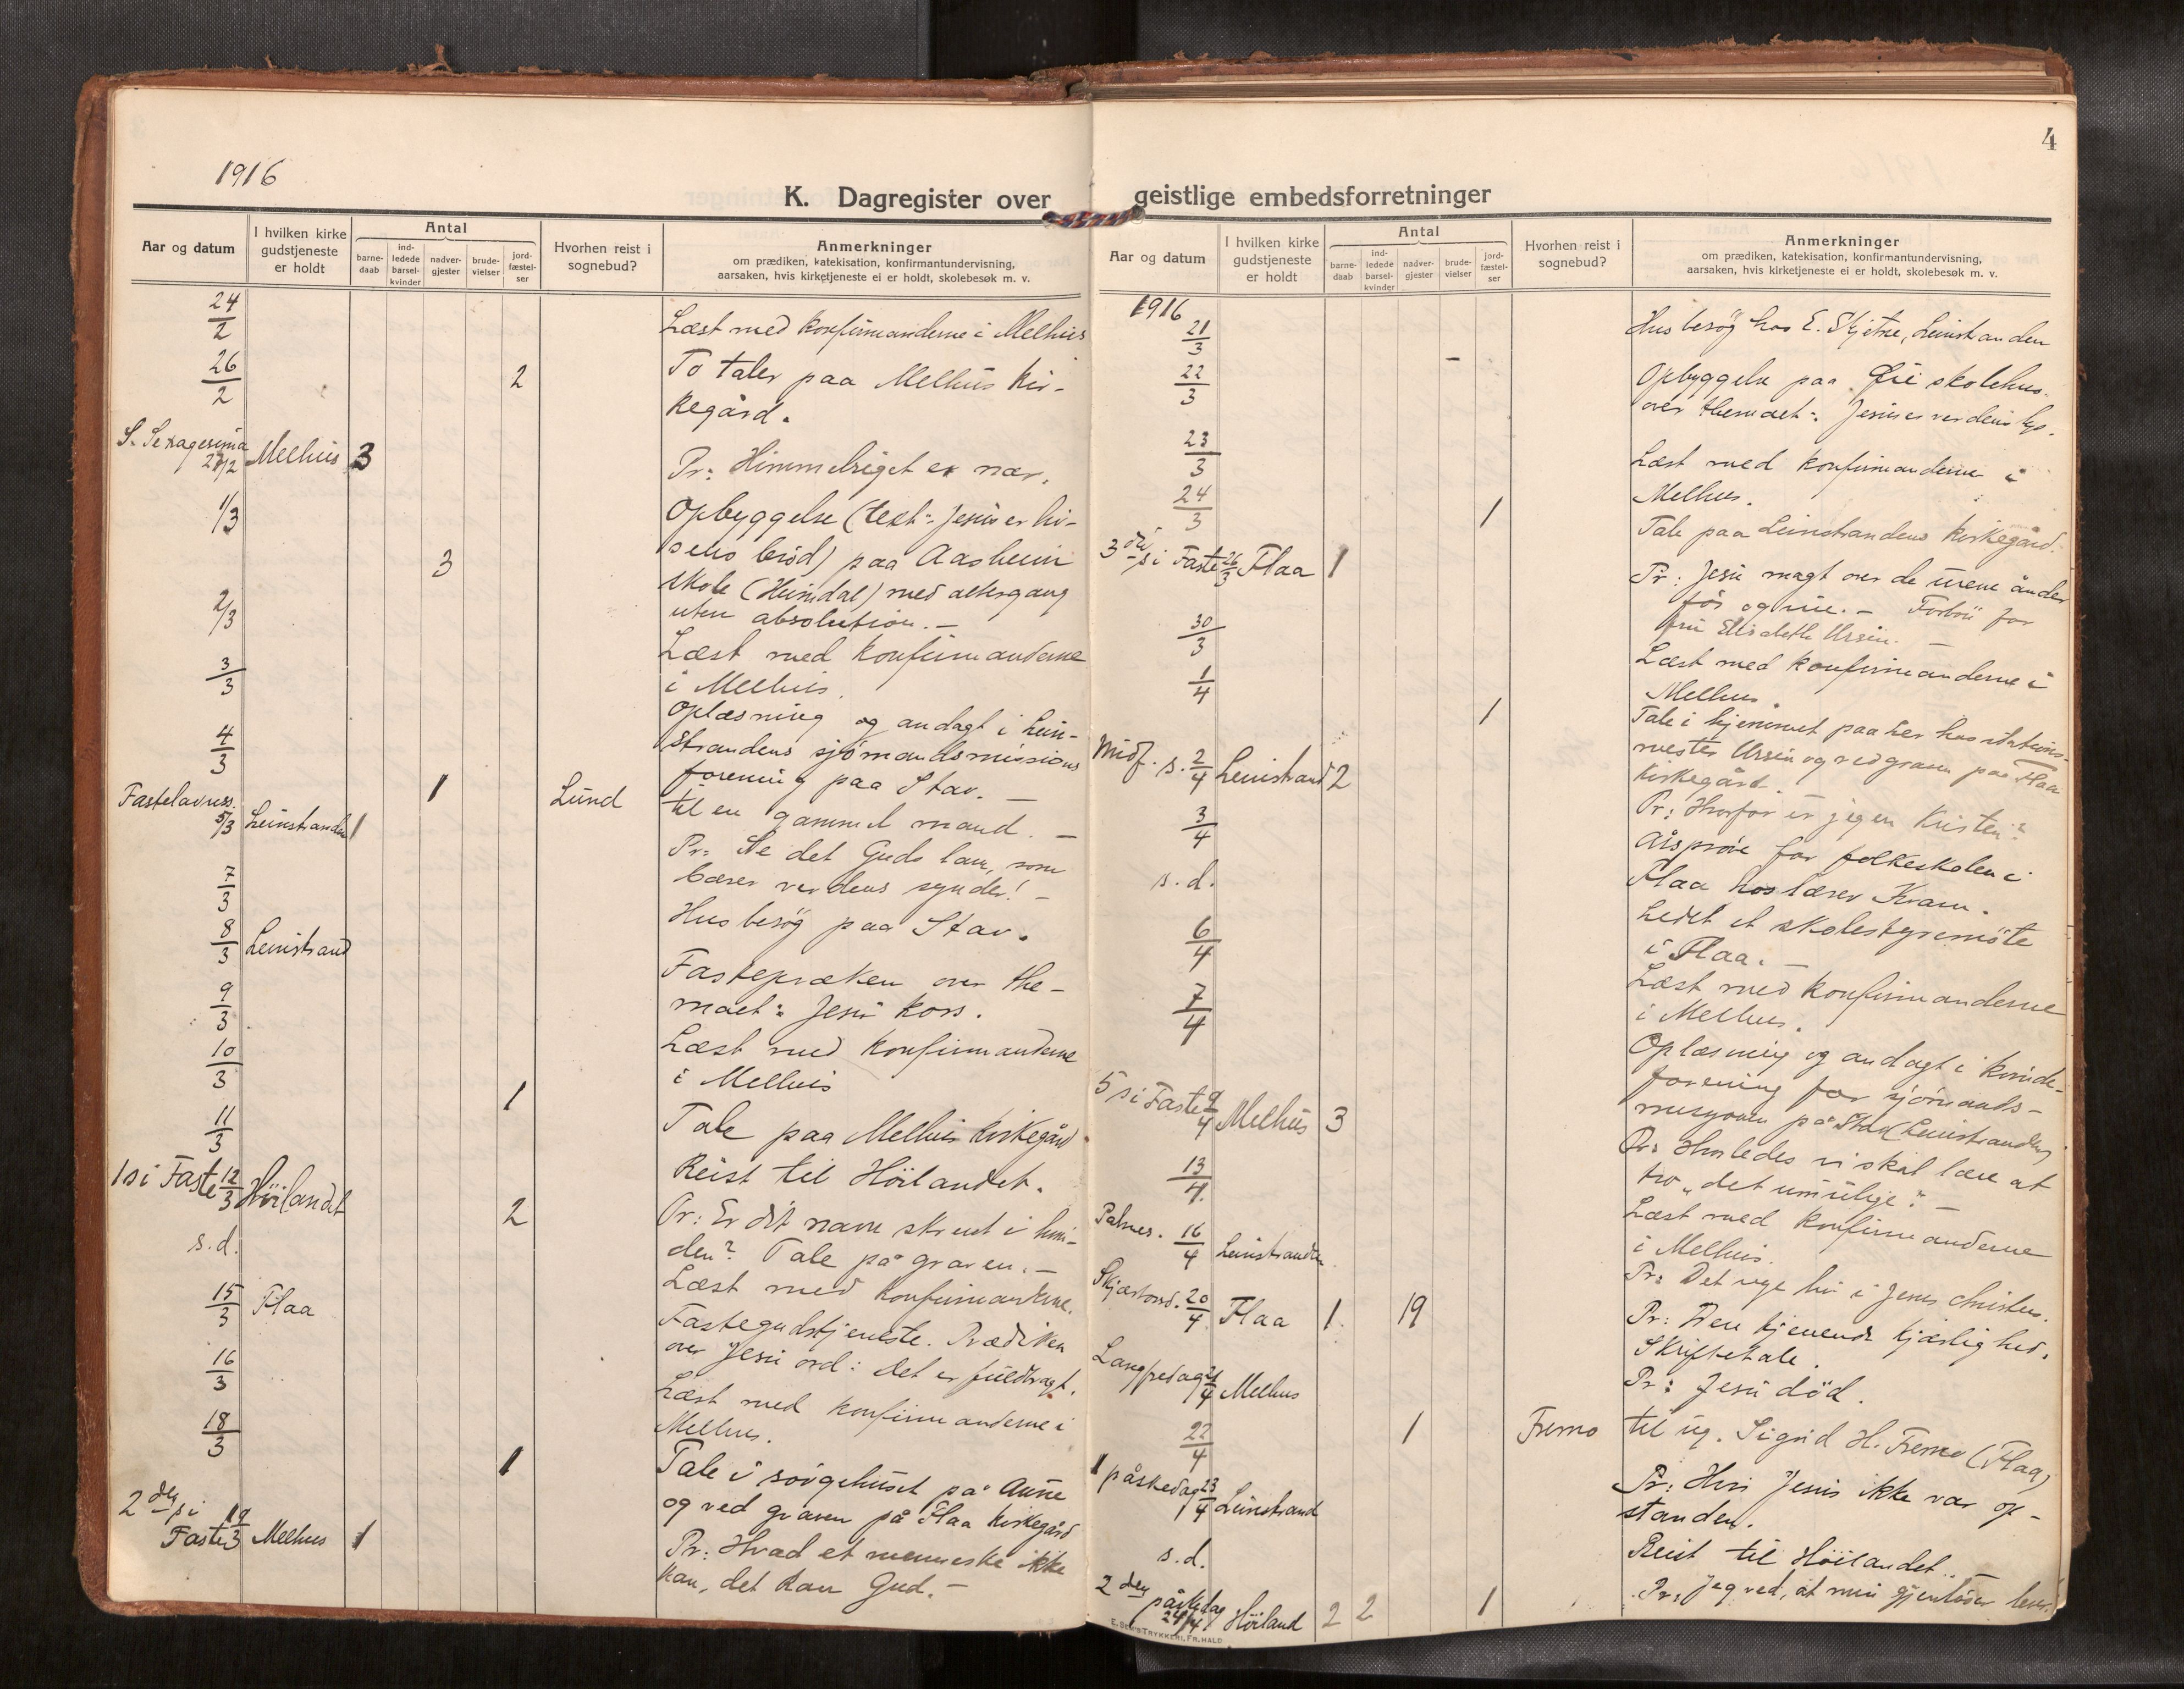 1916
K. Dagregister over
Aar og datum
I hvilken kirke
gudstjeneste
er holdt
Antal
barne-
daab
ind-
ledede
barsel-
kvinder
nadver-
gjester
brude-
vielser
jord-
fæstel-
ser
Hvorhen reist i
sognebud?
Anmerkninger
om prædiken, katekisation, konfirmantundervisning,
aarsaken, hvis kirketjeneste ei er holdt, skolebesøk m. v.
24/2 Læst med konfirmanderne i Melhus
26/2 2 To taler paa Melhus kir-
kegård.
S. Sexagesima
27/2 Melhus 3 Pr: Himmelriget er nær.
1/3 Opbyggelse (text: Jesus er li-
3 vsens brød) paa Aasheim
skole (Heimdal) med altergang
uten absolution. –
2/3 Læst med konfirmanderne
i Melhus.
3/3 Oplæsning og andagt i Lein-
strandens sjömandsmissions
forening paa Stav. –
4/3 1 Lund til en gammel mand. –
Fastelavnss.
5/3 Leinstranden 1 Pr: Se det Guds lam, som
bærer verdens synder! –
7/3 Husbesøg paa Stav.
8/3 Leinstrand Fastepræken over the-
maet: Jesu kors.
9/3 Læst med konfirmanderne
i Melhus
10/3 1 Tale paa Melhus kirkegård
11/3 Reist til Höilandet.
1 s i Faste 12/3 Höilandet Pr: Er dit navn skrevet i him-
s.d. 2 len? Tale på graven. –
Læst med konfirmanterne.
15/3 Flaa Fastegudstjeneste. Prædiken
over Jesu ord: Det er fuldbragt.
16/3 Læst med konfirmanderne i
Melhus.
18/3 1 Tale i sörgehuset på Aune
og ved graven på Flaa kirkegård
2den s i
Faste 19/3 Melhus 1 Pr: Hvad et menneske ikke
kan, det kan Gud. –
4
geistlige embedsforretninger
Aar og datum
I hvilken kirke
gudstjeneste
er holdt
Antal
barne-
daab
ind-
ledede
barsel-
kvinder
nadver-
gjester
brude-
vielser
jord-
fæstel-
ser
Hvorhen reist i
sognebud?
Anmerkninger
om prædiken, katekisation, konfirmantundervisning,
aarsaken, hvis kirketjeneste ei er holdt, skolebesøk m. v.
1916
21/3 Husbesøg hos E. Skjetne, Leinstranden
22/3 Opbyggelse paa skolehus
over themaet: Jesus er verdens lys.
23/3 Læst med konfirmanderne i
Melhus.
24/3 1 Tale paa Leinstrandens kirkegård.
3die s i Faste 26/3 Flaa 1 Pr: Jesu magt over de urene ånder
för og nu. – Forbön for
fru Elisabeth Ursin. –
30/3 Læst med konfirmanderne i
Melhus.
1/4 1 Tale i hjemmet paa Ler hos stations-
mester Ursin og ved graven paa Flaa
kirkegård.
Midf. s. 2/4 Leinstrand 2 Pr: Hvorfor er jeg en kristen?
3/4 Årsprøve for folkeskolen i
Flaa hos lærer Kvam.
s.d. Ledet et skolestyremöte
i Flaa. –
6/4 Læst med konfirmanderne
i Melhus.
7/4 Oplæsning og andagt i kvinde-
forening for sjömands-
misjonen på Stav (Leinstranden)
5 s i Faste 9/4 Melhus 3 Pr: Hvorledes vi skal lære at
tro „det umulige? –
13/4 Læst med konfirmanderne
i Melhus.
Palmes. 16/4 Leinstranden Pr: Det nye liv i Jesus Christus.
Skjærtorsd. 20/4 Flaa 1. 19 Pr: Den tjenende kjærlighed.
Skriftetale.
Langfredag 21/4 Melhus Pr: Jesu död.
22/4 1 Fremo til ug. Sigrid H. Fremo (Flaa)
1 påskedag 23/4 Leinstrand Pr: Hvis Jesus ikke var op-
standen.
s.d. Reist til Höilandet. –
2den påskedag
24/4 Höiland 2 2 1 Pr: Jeg ved, at min gjenlöser lever.
E. TRYKKERI, FR. HALD